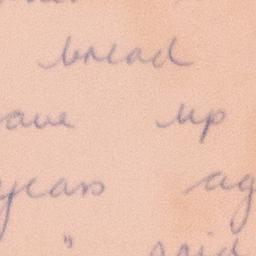 bread
ave up
years ag
" said